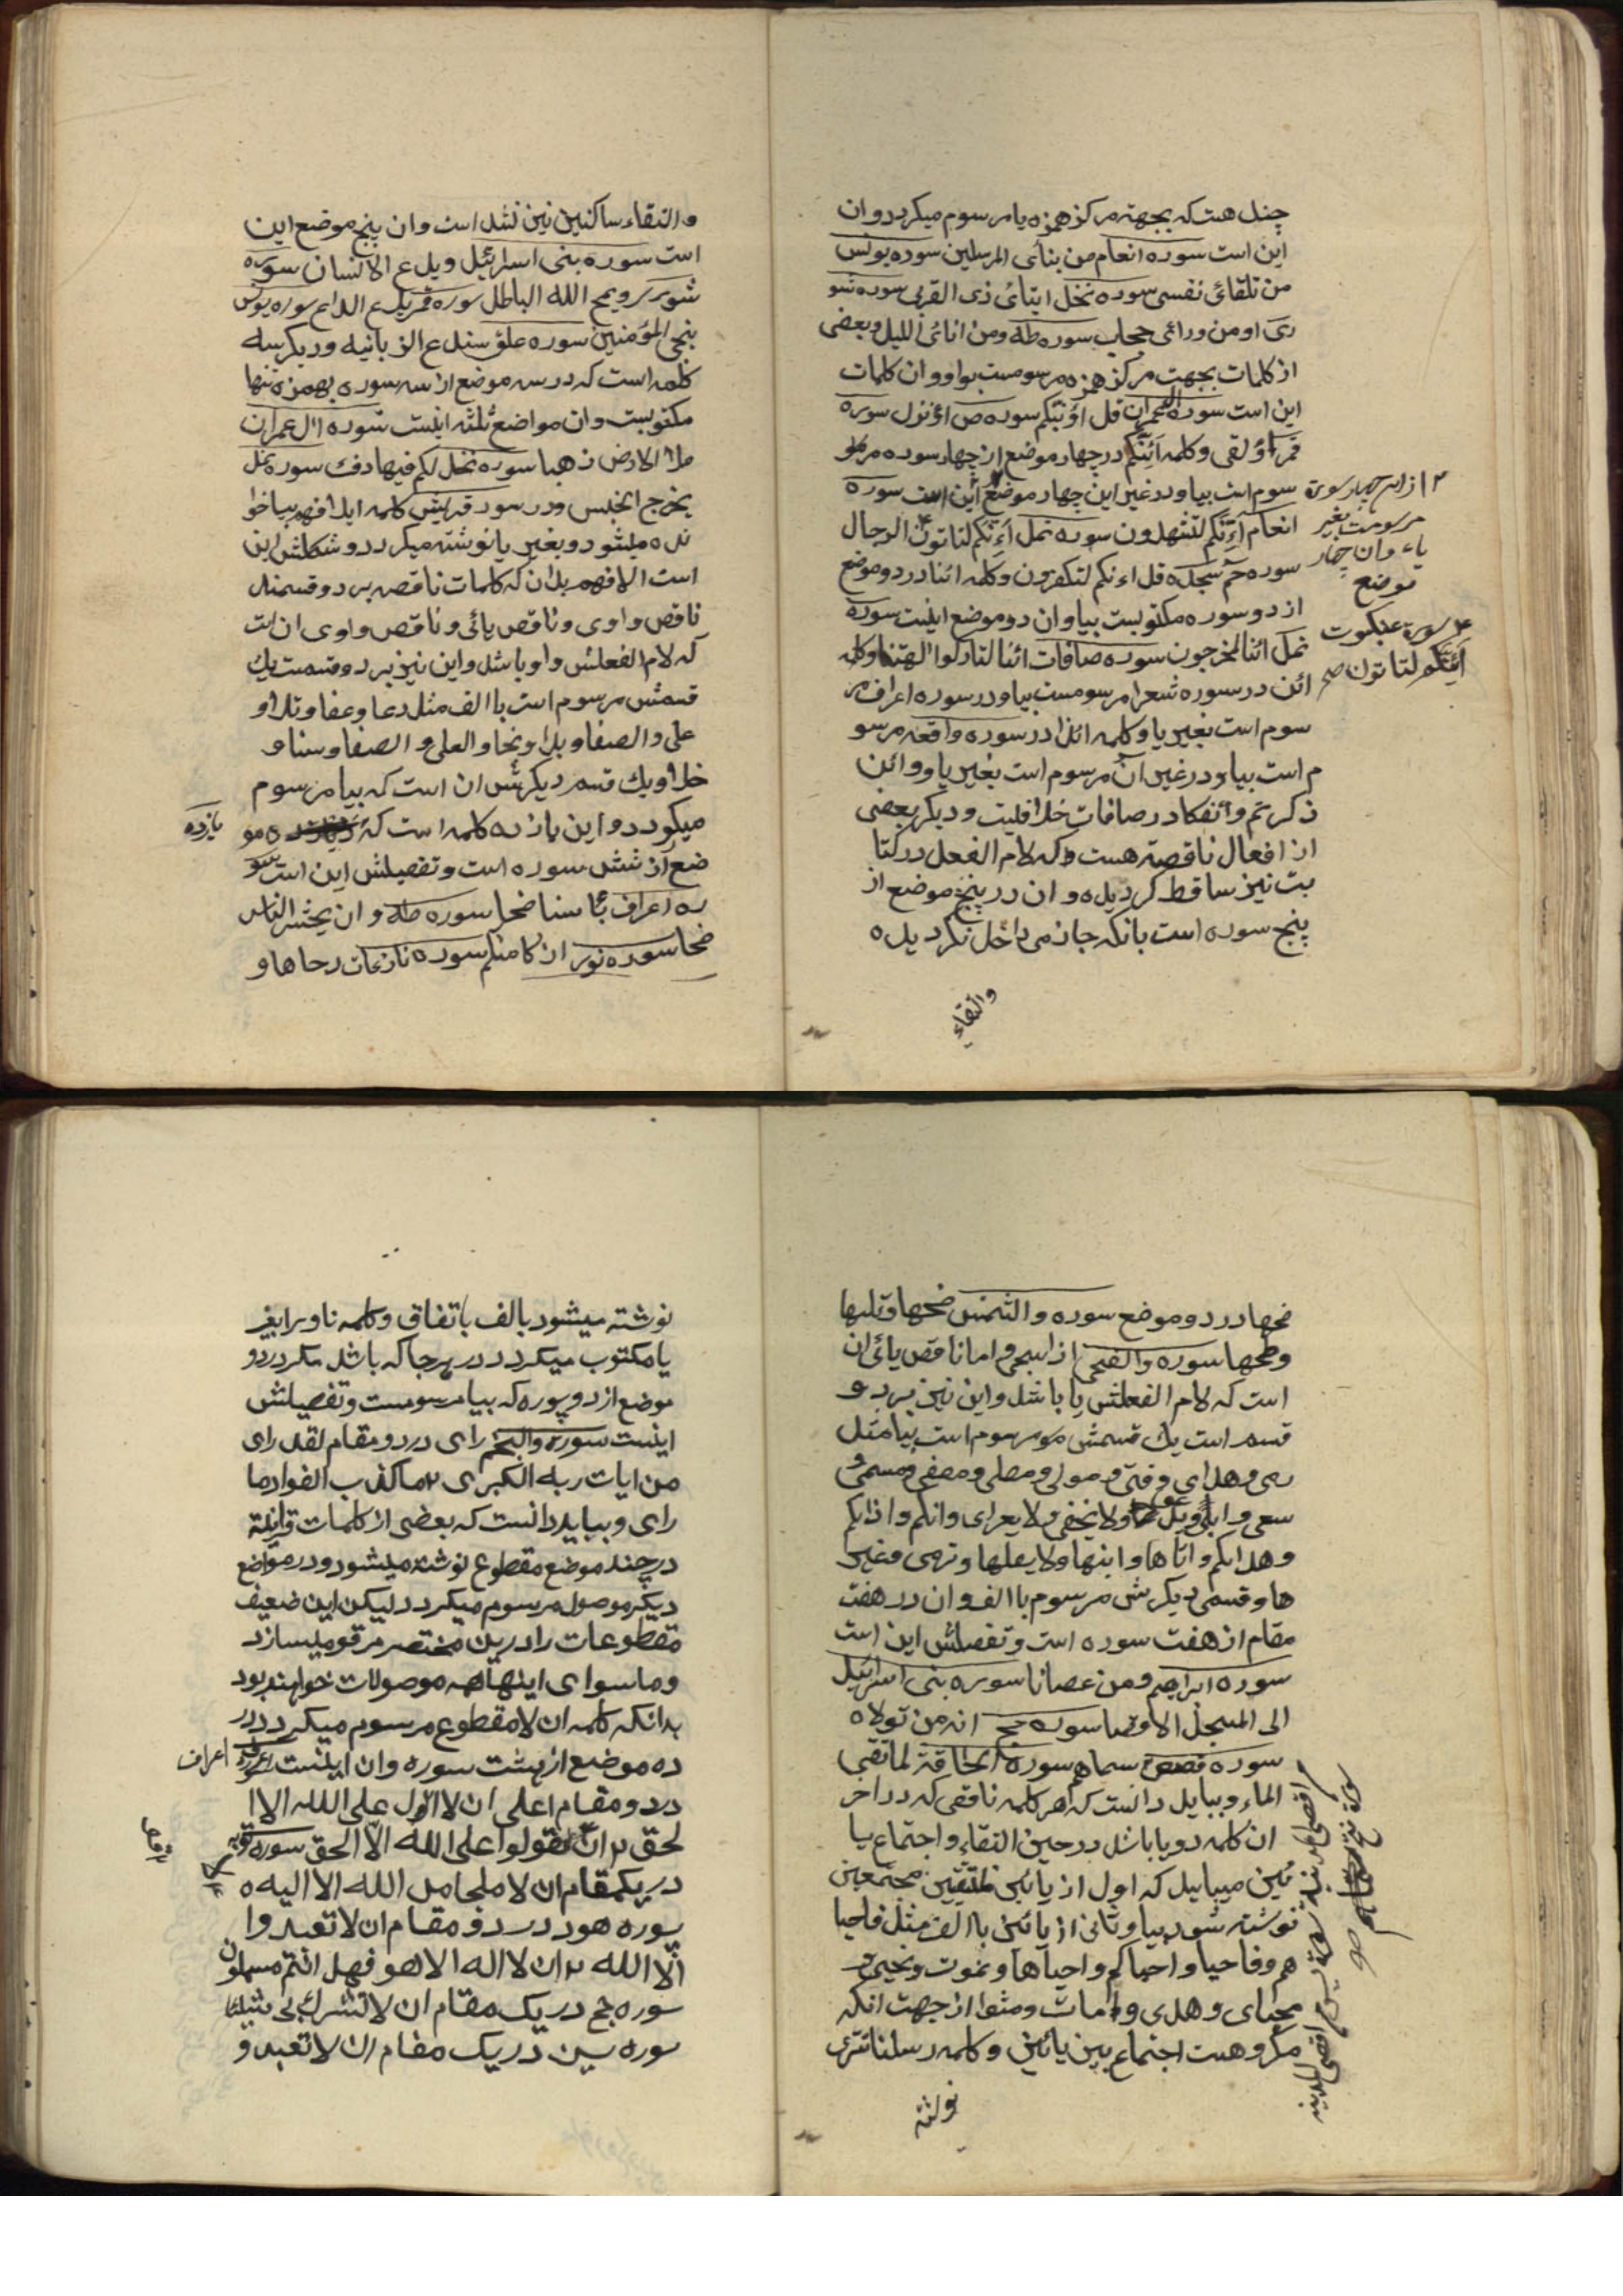 چند هست که بجهة مرکز همزه یا مرسوم میکردد وان
این است سوره انعام من بنائ المرسلین سوره یونس
من تلقائ نفسی سوره نحل ایتائ ذی القربی سوره شو
ری او من ورائ حجاب سوره طه ومن انائ اللیل وبعضی
از کلمات بجهت مرکز همزه مرسومست بواو وان کلمات
این است سوره العمران قل اؤنبئکم سوره ص اؤنزل سوره
قمر اؤلقی وکلمه أئنکم در چهار موضع از چهار سوره مر
سوم است بیا ودر غیر این چهار موضع این است سوره
انعام أئنکم لتشهدون سوره نمل أئنکم لتاتون الرجال
سوره حم سجده قل اءنکم لتکفرون وکلمه ائنا در دو موضع
از دو سوره مکتوبست بیا وان دو موضع اینست سوره
نمل ائنا لمخرجون سوره صافات ائنا لتارکوا الهتنا وکلمه
ائن در سوره شعرا مرسومست بیا ودر سوره اعراف مر
سوم است بغیر یا وکلمه ائذا در سوره واقعه مرسو
م است بیا ودر غیر ان مرسوم است بغیر یا ووائن
ذکرتم وائفکا در صافات خلافیست ودیکر بعضی
از افعال ناقصه هست که لام الفعل در کتا
بت نیز ساقط کردیده وان در پنج موضع از
پنج سوره است بانکه جازمی داخل نکردیده
والتقاء
۲ از این چهار سوره
مرسومست بغیر
یاء وان چهار
موضع
سوره عنکبوت
أئنکم لتاتون صح
والتقاء ساکنین نیز نشده است وان پنج موضع این
است سوره بنی اسرائیل ویدع الانسان سوره
شوری ویمح الله الباطل سوره قمر یدع الداع سوره یونس
ننجی المؤمنین سوره علق سندع الزبانیه ودیکر سه
کلمه است که در سه موضع از سه سوره بهمزه تنها
مکتوبست وان مواضع ثلثه اینست سوره ال عمران
ملء الارض ذهبا سوره نحل لکم فیها دفء سوره نمل
یخرج الخبء ودر سوره قریش کلمه ایلافهم بیا خوا
نده میشود وبغیر یا نوشته میکردد وشکلش این
است الافهم بدان که کلمات ناقصه بر دو قسمند
ناقص واوی وناقص یائی وناقص واوی ان است
که لام الفعلش واو باشد واین نیز بر دو قسمست یک
قسمش مرسوم است باالف مثل دعا وعفا وتلا و
علی والصفا وبدا ونجا والعلی و الصفا وسنا و
خلا ویک قسم دیکرش ان است که بیا مرسوم
میکردد واین یازده کلمه است که ده مو
ضع از شش سوره است وتفصیلش این است سو
ره اعراف بأسنا ضحی سوره طه و ان یحشر الناس
ضحا سوره نور ما زکا منکم سوره نازعات دحاها و
یازده
ضحها در دو موضع سوره والشمس ضحها وتلیها
وطحها سوره والضحی اذا سجی واما ناقص یائی ان
است که لام الفعلش یا باشد واین نیز بر دو
قسم است یک قسمش مرسوم است بیا مثل
رمی وهدای وفتی ومولی ومصلی ومصفی ومسمی و
سعی وابی ولا یخفی ولا یعرای وانکم واذا بکم
وهدایکم واتاها وابنها ولا یصلها وترمی وغیر
ها وقسمی دیکرش مرسوم باالف وان در هفت
مقام از هفت سوره است وتفصیلش این است
سوره ابراهیم ومن عصانا سوره بنی اسرائیل
الی المسجد الاقصا سوره حج انه من تولاه
سوره قصص سماهم سوره الحاقة لما طغی
الماء وبباید دانست که هر کلمه ناقصی که در اخر
ان کلمه دو یا باشد در حین التقاء واجتماع یا
ئین میباید که اول از یائین ملتقین مجتمعین
نوشته شود بیا وثانی از یائین باالف مثل فاحیا
هم وفاحیا واحیاکم واحیاها ونموت ونحیی و
محیای وهدی وامات ومثوا از جهت انکه
مکروهست اجتماع بین یائین وکلمه رسلنا تتری
نوشته
نوشته میشود بالف باتفاق وکلمه نا ورا بغیر
یا مکتوب میکردد در هر جا که باشد مکر در دو
موضع از دو سوره که بیا مرسومست وتفصیلش
اینست سوره والنجم رای در دو مقام لقد رای
من ایات ربه الکبری ۲ ما کذب الفواد ما
رای وبباید دانست که بعضی از کلمات قرانیة
در چند موضع مقطوع نوشته میشود ودر مواضع
دیکر موصول مرسوم میکردد لیکن این ضعیف
مقطوعات را درین مختصر مرقوم میسازد
وما سوای اینها همه موصولات خواهند بود
بدانکه کلمه ان لا مقطوع مرسوم میکردد در
ده موضع از هشت سوره وان اینست
در دو مقام اعلی ان لا اقول علی الله الا ا
لحق ۲ ان لا تقولوا علی الله الا الحق سوره توبه
در یک مقام ان لا ملجا من الله الا الیه
سوره هود در دو مقام ان لا تعبدوا
الا الله ۲ ان لا اله الا هو فهل انتم مسلمون
سوره حج در یک مقام ان لا تشرک بی شیئا
سوره یسن در یک مقام ان لا تعبدوا
اعراف